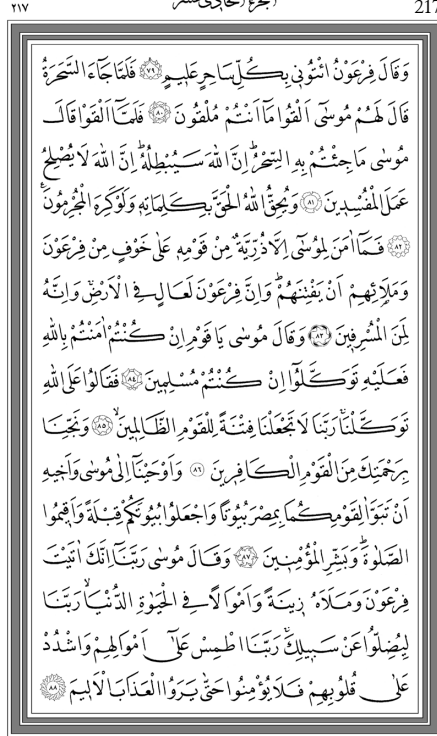 ٢١٧ الجزء الحادي عشر 217
وَقَالَ فِرْعَوْنُ ائْتُونِي بِكُلِّ سَاحِرٍ عَلِيمٍ ﴿٧٩﴾ فَلَمَّا جَاءَ السَّحَرَةُ
قَالَ لَهُمْ مُوسٰى اَلْقُوا مَا اَنْتُمْ مُلْقُونَ ﴿٨٠﴾ فَلَمَّا اَلْقَوْا قَالَ
مُوسٰى مَا جِئْتُمْ بِهِ السِّحْرُ اِنَّ اللّٰهَ سَيُبْطِلُهُ اِنَّ اللّٰهَ لَا يُصْلِحُ
عَمَلَ الْمُفْسِدِينَ ﴿٨١﴾ وَيُحِقُّ اللّٰهُ الْحَقَّ بِكَلِمَاتِهِ وَلَوْ كَرِهَ الْمُجْرِمُونَ
﴿٨٢﴾ فَمَا اٰمَنَ لِمُوسٰى اِلَّا ذُرِّيَّةٌ مِنْ قَوْمِهِ عَلٰى خَوْفٍ مِنْ فِرْعَوْنَ
وَمَلَائِهِمْ اَنْ يَفْتِنَهُمْ وَاِنَّ فِرْعَوْنَ لَعَالٍ فِي الْاَرْضِ وَاِنَّهُ
لَمِنَ الْمُسْرِفِينَ ﴿٨٣﴾ وَقَالَ مُوسٰى يَا قَوْمِ اِنْ كُنْتُمْ اٰمَنْتُمْ بِاللّٰهِ
فَعَلَيْهِ تَوَكَّلُوا اِنْ كُنْتُمْ مُسْلِمِينَ ﴿٨٤﴾ فَقَالُوا عَلَى اللّٰهِ
تَوَكَّلْنَا رَبَّنَا لَا تَجْعَلْنَا فِتْنَةً لِلْقَوْمِ الظَّالِمِينَ ﴿٨٥﴾ وَنَجِّنَا
بِرَحْمَتِكَ مِنَ الْقَوْمِ الْكَافِرِينَ ﴿٨٦﴾ وَاَوْحَيْنَا اِلٰى مُوسٰى وَاَخِيهِ
اَنْ تَبَوَّاٰ لِقَوْمِكُمَا بِمِصْرَ بُيُوتًا وَاجْعَلُوا بُيُوتَكُمْ قِبْلَةً وَاَقِيمُوا
الصَّلٰوةَ وَبَشِّرِ الْمُؤْمِنِينَ ﴿٨٧﴾ وَقَالَ مُوسٰى رَبَّنَا اِنَّكَ اٰتَيْتَ
فِرْعَوْنَ وَمَلَاَهُ زِينَةً وَاَمْوَالًا فِي الْحَيٰوةِ الدُّنْيَا رَبَّنَا
لِيُضِلُّوا عَنْ سَبِيلِكَ رَبَّنَا اطْمِسْ عَلٰى اَمْوَالِهِمْ وَاشْدُدْ
عَلٰى قُلُوبِهِمْ فَلَا يُؤْمِنُوا حَتّٰى يَرَوُا الْعَذَابَ الْاَلِيمَ ﴿٨٨﴾